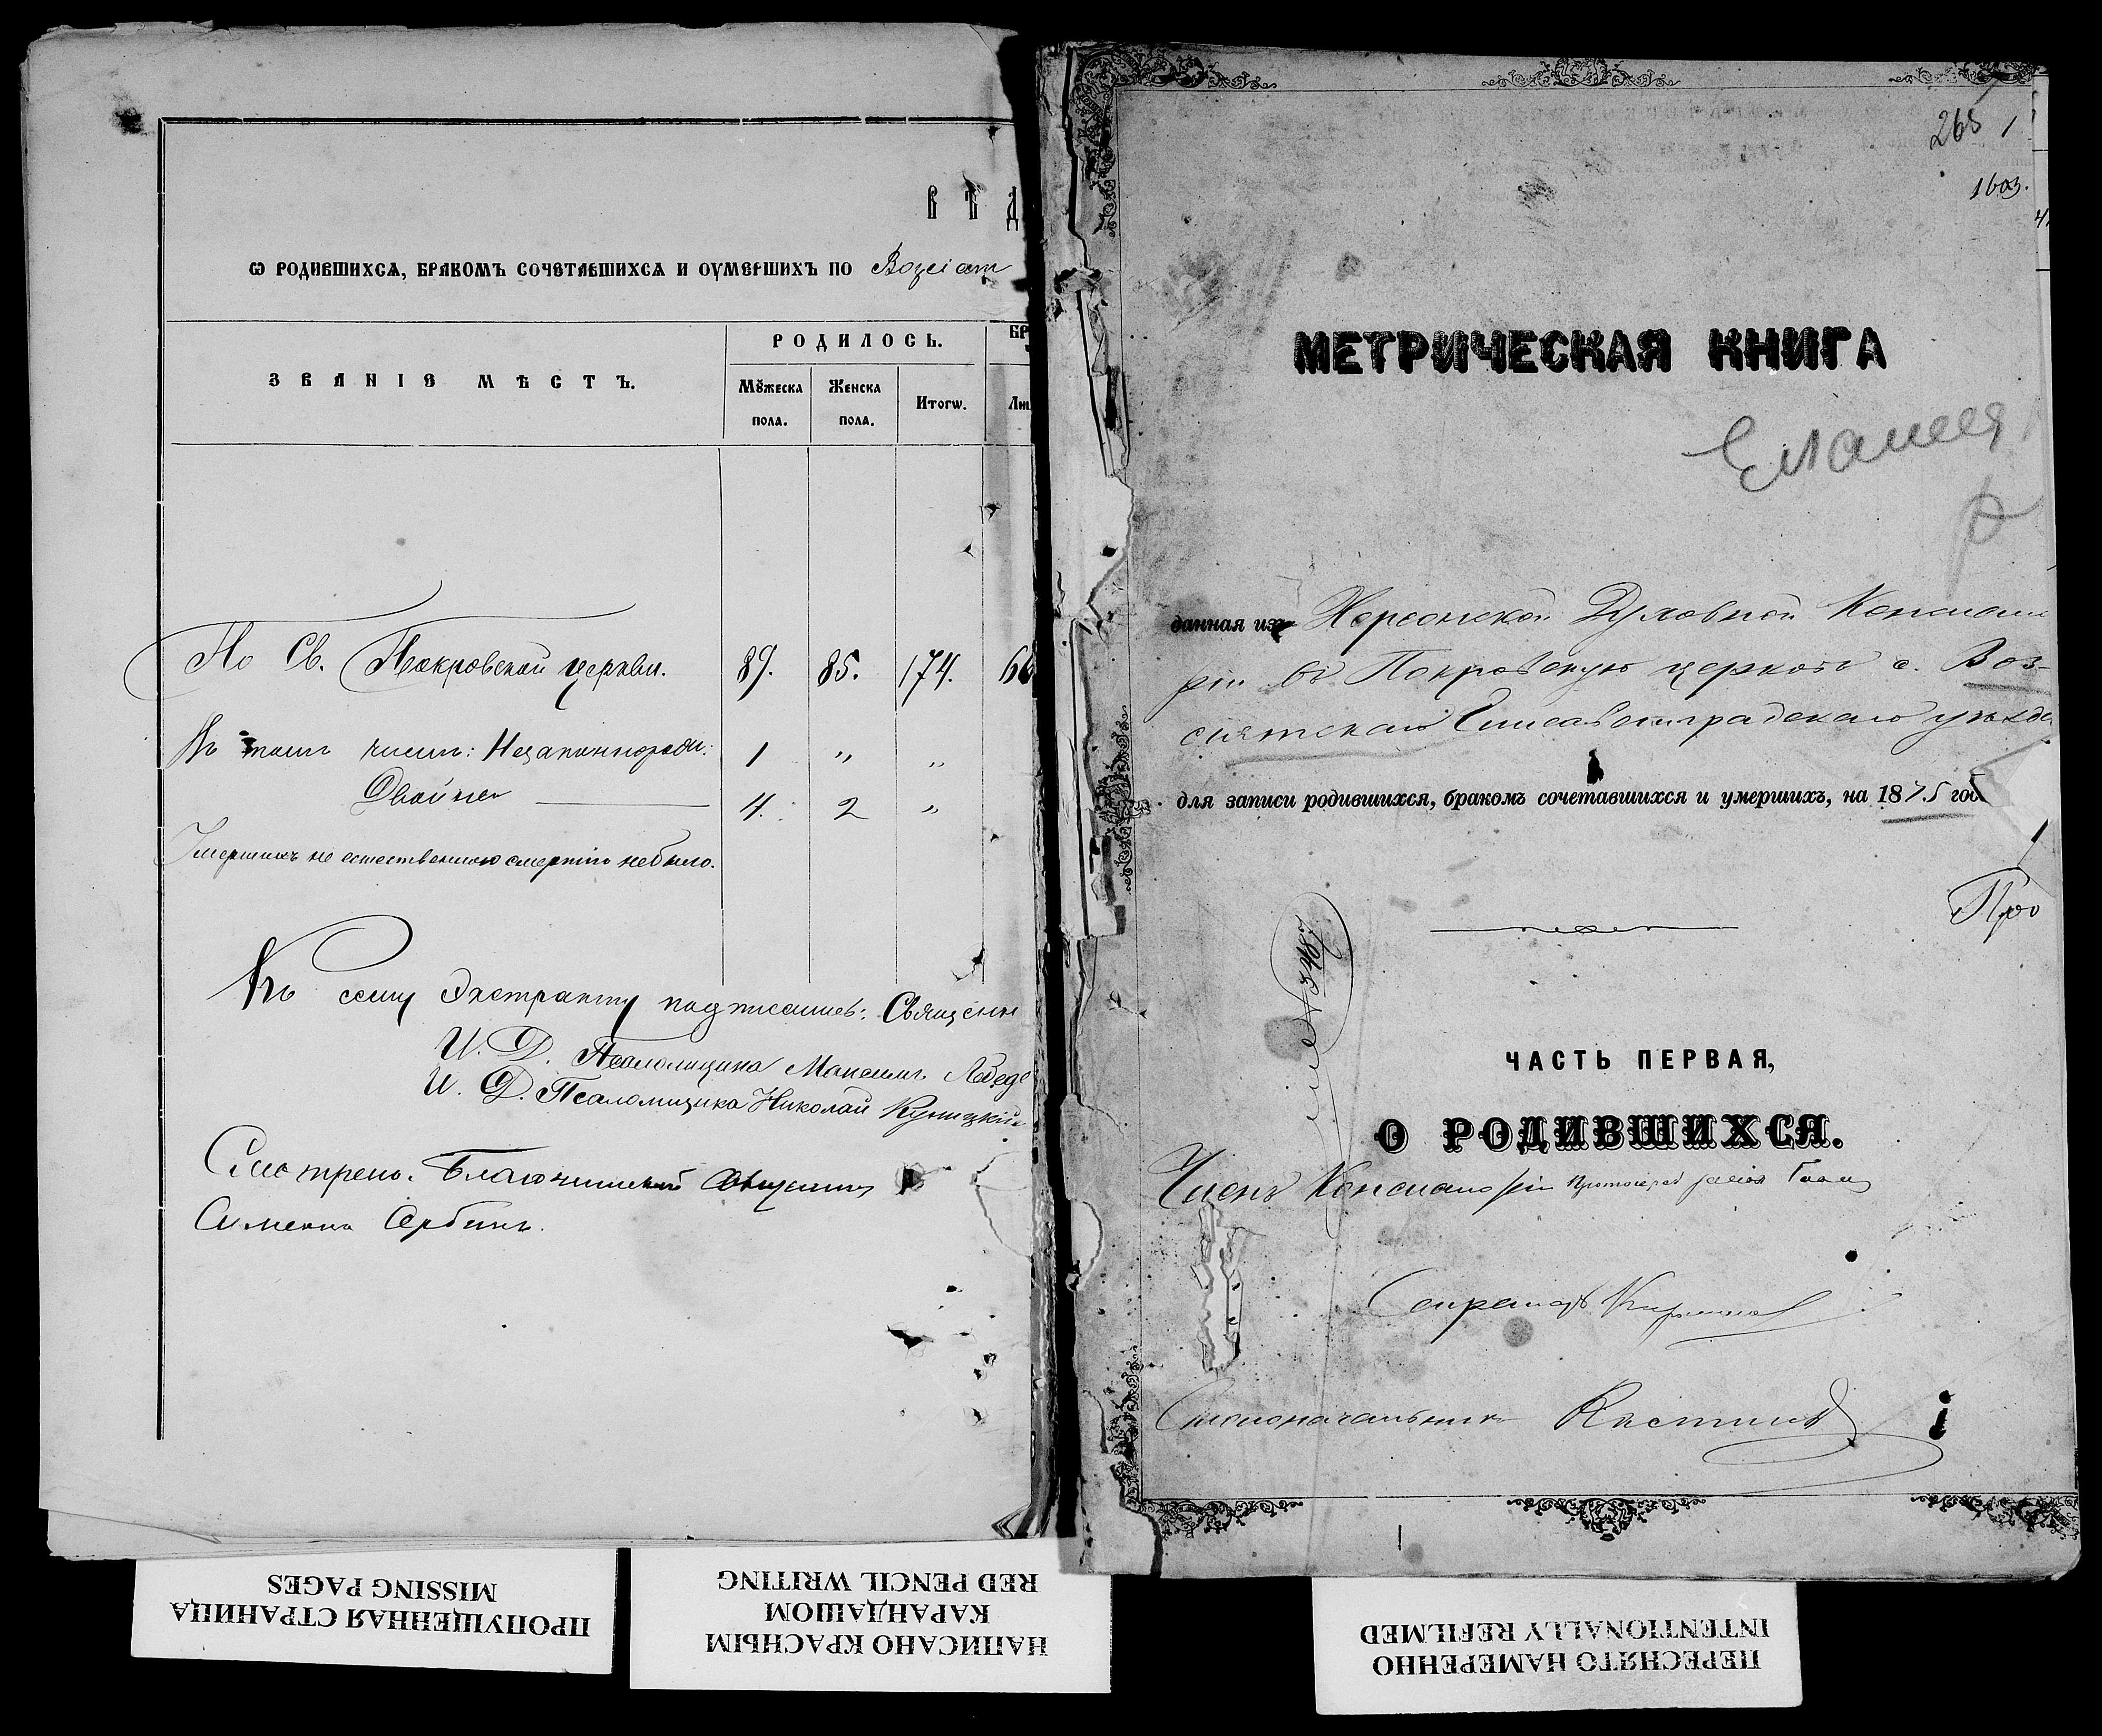 ВѢД
Ѡ РОДИВШИХСѦ, БРАКОМЪ СОЧЕТАВШИХСѦ И ОУМЕРШИХЪ ПО Возсіят
ЗВАНІЕ МѢСТЪ.
РОДИЛОСЬ.
БР
Мꙋжеска пола.
Женска пола.
Итогѡ.
Ли
По Св. Покровской церкви. 89. 85. 174. 66
Въ томъ числѣ: Незаконнорожд: 1 " "
Двойни 4. 2 "
Умершихъ не естественною смертію не было.
Къ сему Экстракту подписались: Священн
И. Д. Псаломщика Максимъ Лебеде
И. Д. Псаломщика Николай Куницкій
Смотрено. Благочинный Священникъ
Симеонъ Сербинъ.
265 1
1603.
МЕТРИЧЕСКАЯ КНИГА
данная изъ Херсонской Духовной Консисто
ріи въ Покровскую церковь с. Воз-
сіятскаго Елисаветградскаго уѣзда
для записи родившихся, бракомъ сочетавшихся и умершихъ, на 1875 год
Про
ЧАСТЬ ПЕРВАЯ,
О РОДИВШИХСЯ.
Членъ Консисторіи Протоіерей
Секретарь
Столоначальникъ
ПРОПУЩЕННАЯ СТРАНИЦА
MISSING PAGES
НАПИСАНО КРАСНЫМ
КАРАНДАШОМ
RED PENCIL WRITING
ПЕРЕСНЯТО НАМЕРЕННО
INTENTIONALLY REFILMED